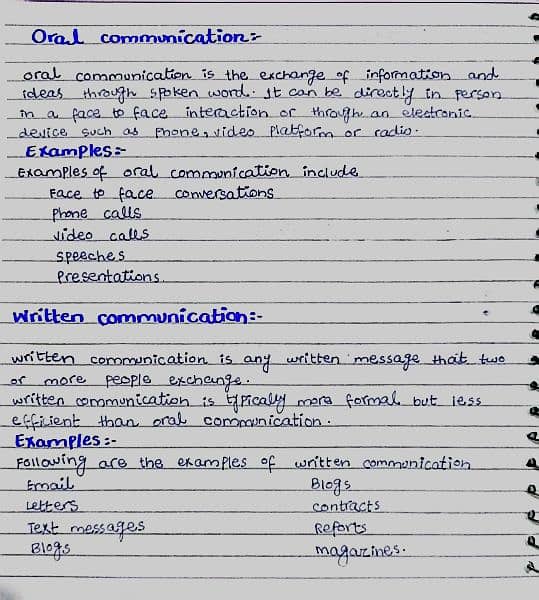 Oral communication:-
oral communication is the exchange of information and
ideas through spoken word. It can be directly in person
in a face to face interaction or through an electronic
device such as Phone, video Platform or radio.
Examples:-
Examples of oral communication include
Face to face conversations
Phone calls
video calls
speeches
Presentations.
Written communication:-
written communication is any written message that two
or more people exchange.
written communication is typically more formal but less
efficient than oral communication.
Examples:-
Following are the examples of written communication
Email Blogs
Letters contracts
Text messages Reports
Blogs magazines.